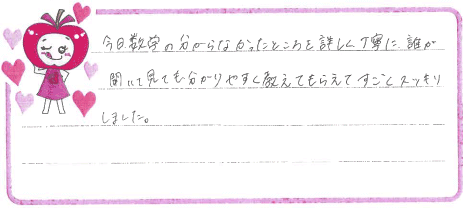 今日数学の分からなかったところを詳しく丁寧に、誰が
聞いて見ても分かりやすく教えてもらえてすごくスッキリ
しました。